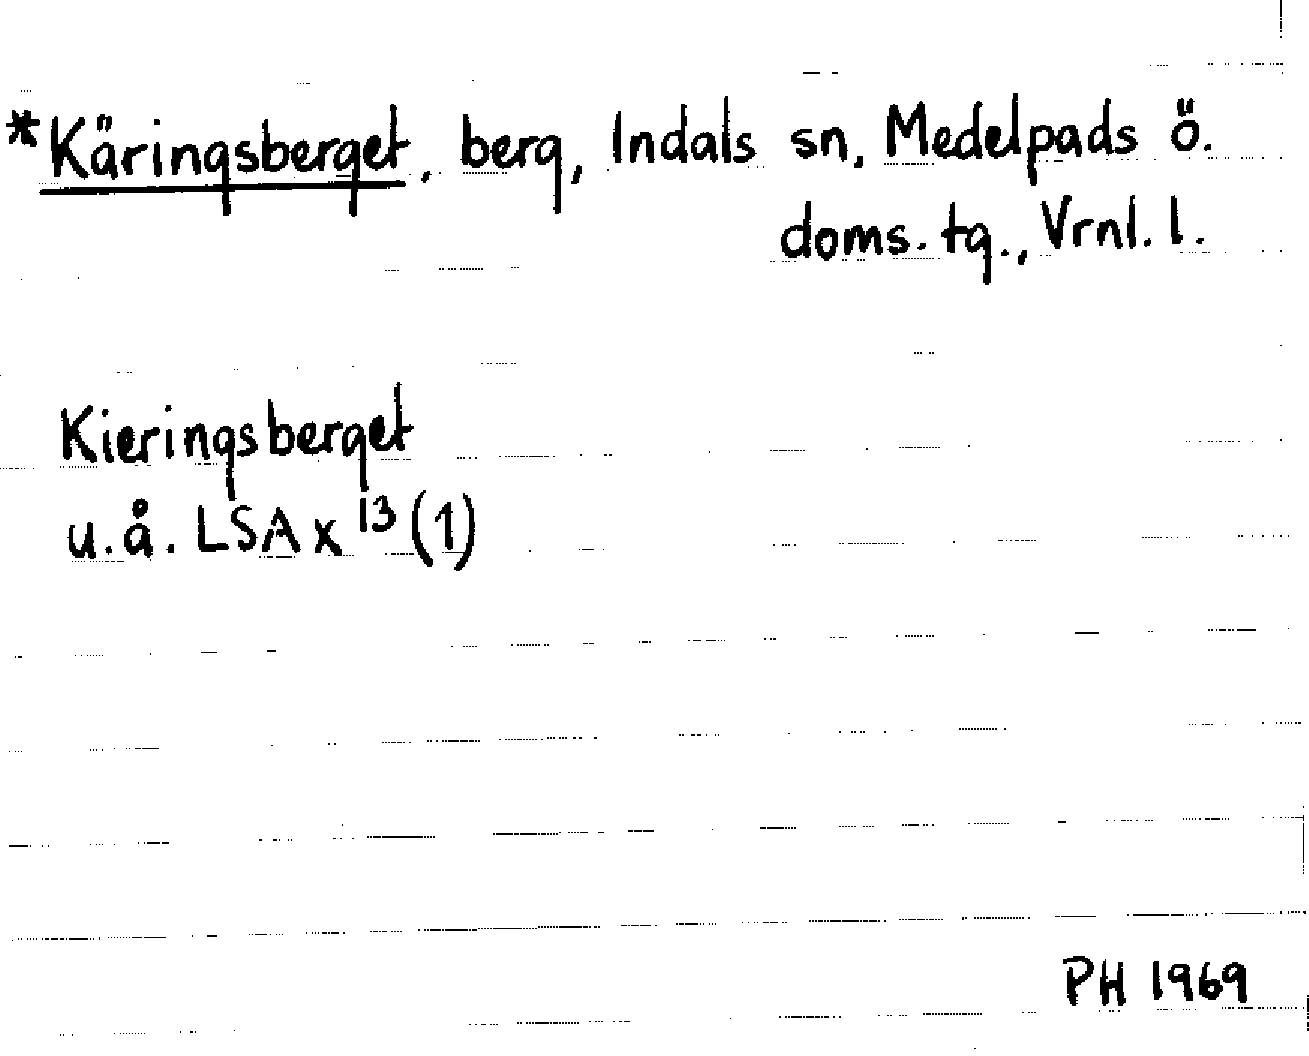 *Käringsberget, berg, Indals sn, Medelpads ö.
doms. tg., Vrnl. l.
Kieringsberget
u.å. LSA X 13 (1)
PH 1969